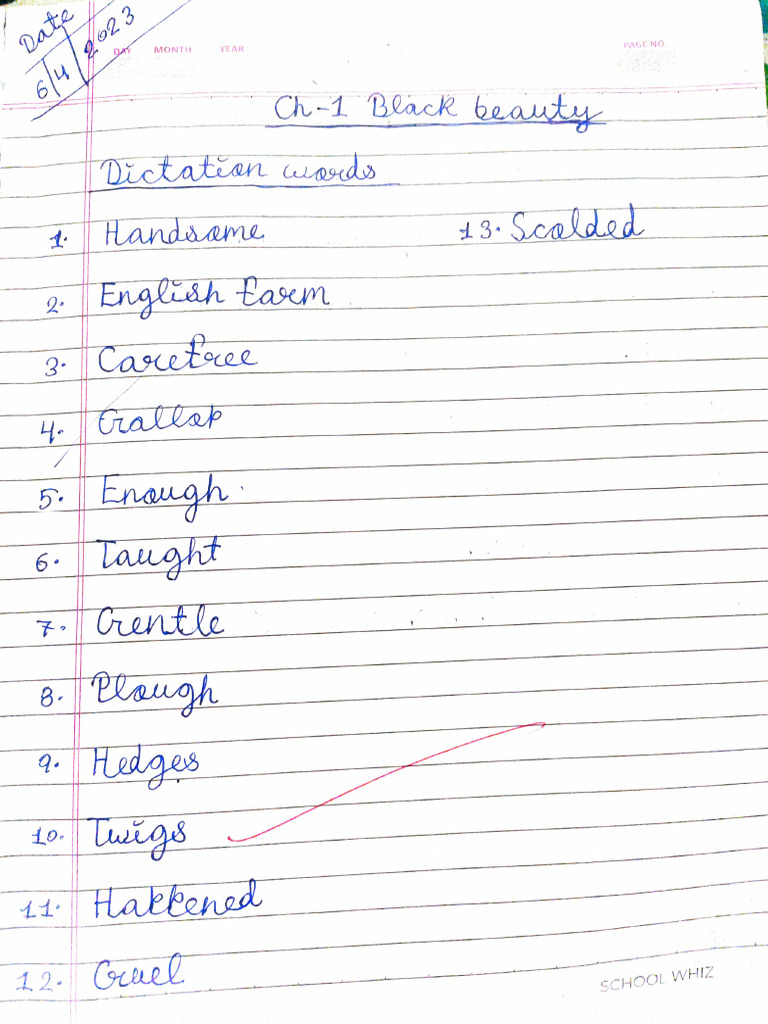 Date
6/4/2023
DAY MONTH YEAR
PAGE NO.
Ch-1 Black beauty
Dictation words
1. Handsome
13. Scolded
2. English farm
3. Carefree
4. Gallop
5. Enough
6. Taught
7. Gentle
8. Plough
9. Hedges
10. Twigs
11. Happened
12. Cruel
SCHOOL WHIZ